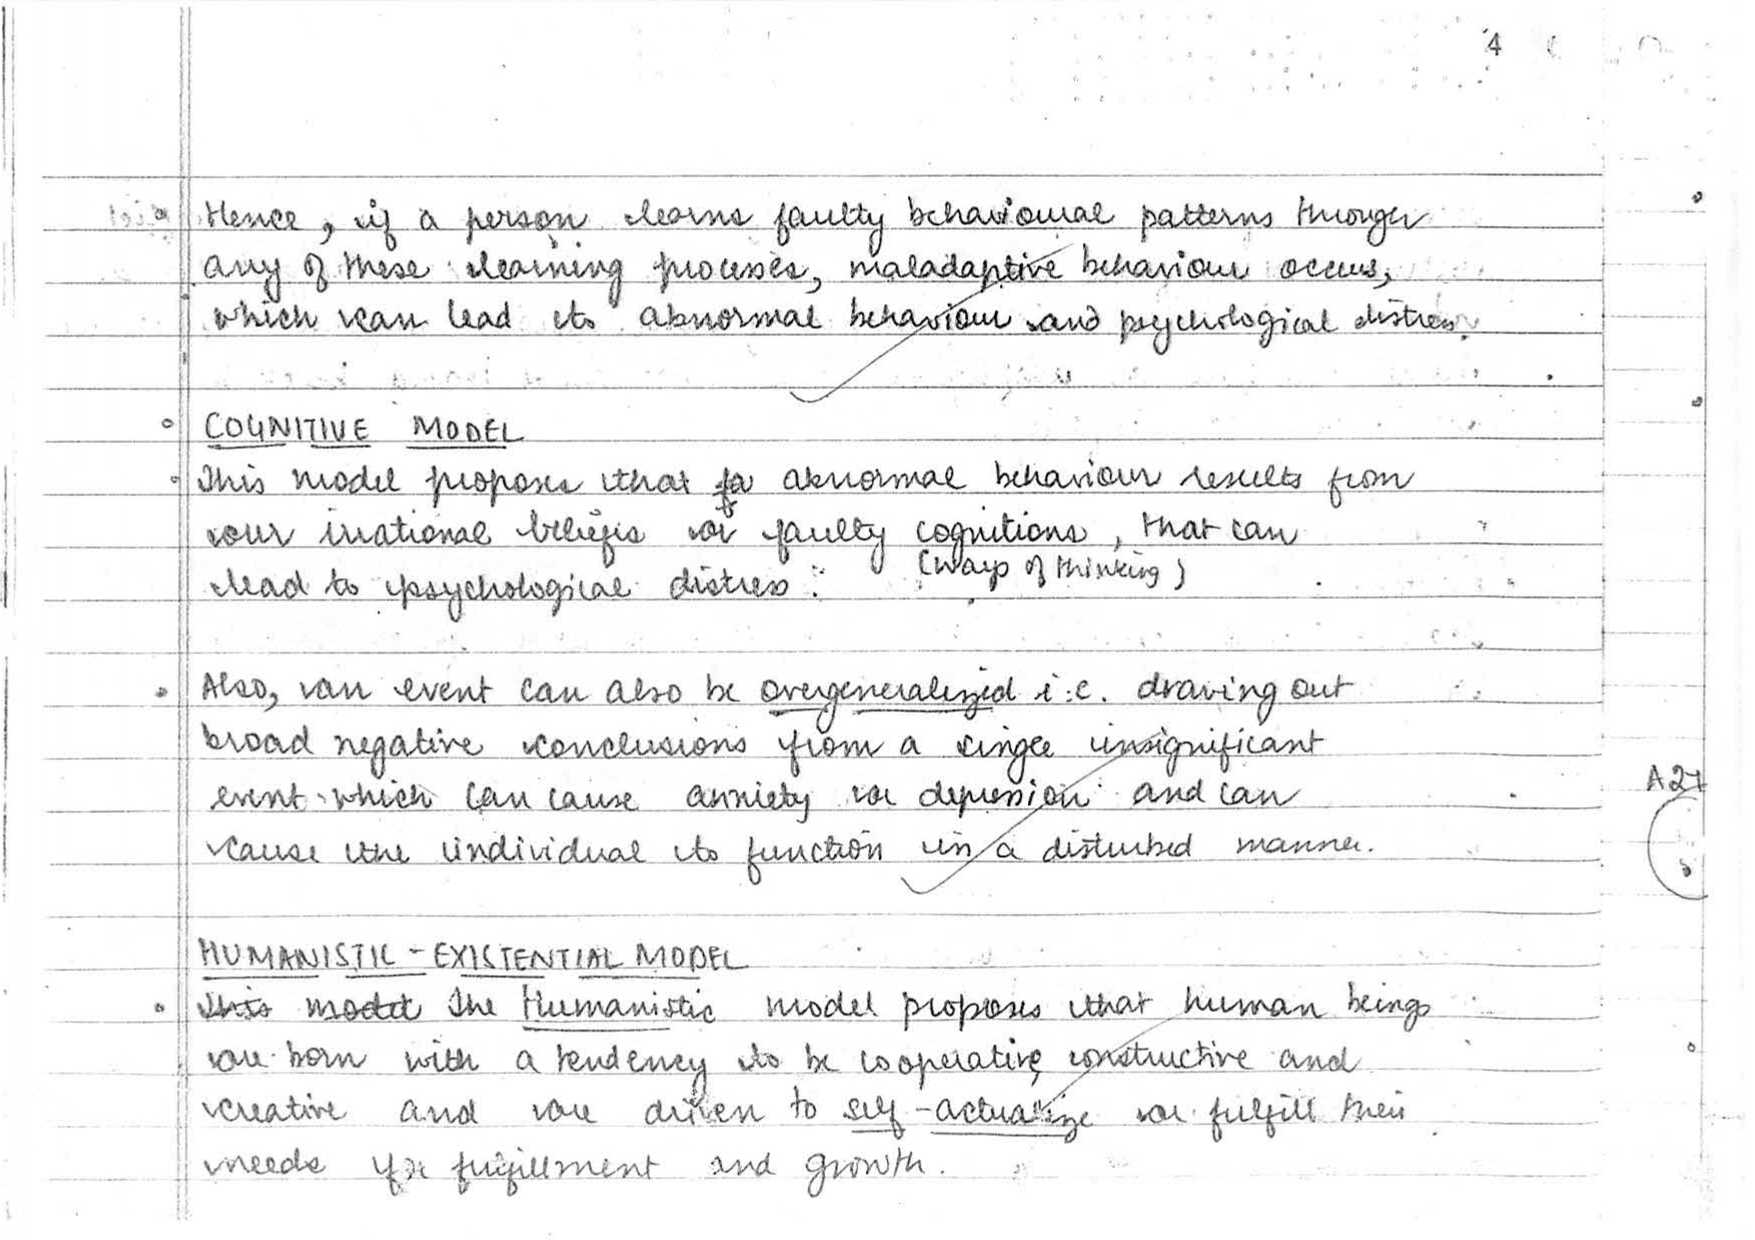 4
Hence, if a person learns faulty behavioural patterns through
any of these learning processes, maladaptive behaviour occurs,
which can lead to abnormal behaviour and psychological distress.
COGNITIVE MODEL
This model proposes that abnormal behaviour results from
our irrational beliefs or faulty cognitions, that can
(ways of thinking)
lead to psychological distress.
Also, an event can also be overgeneralized i.e. drawing out
broad negative conclusions from a single insignificant
event which can cause anxiety or depression and can
cause the individual to function in a disturbed manner.
A27
HUMANISTIC - EXISTENTIAL MODEL
This model The Humanistic model proposes that human beings
are born with a tendency to be cooperative, constructive and
creative and are driven to self-actualize or fulfill their
needs for fulfillment and growth.